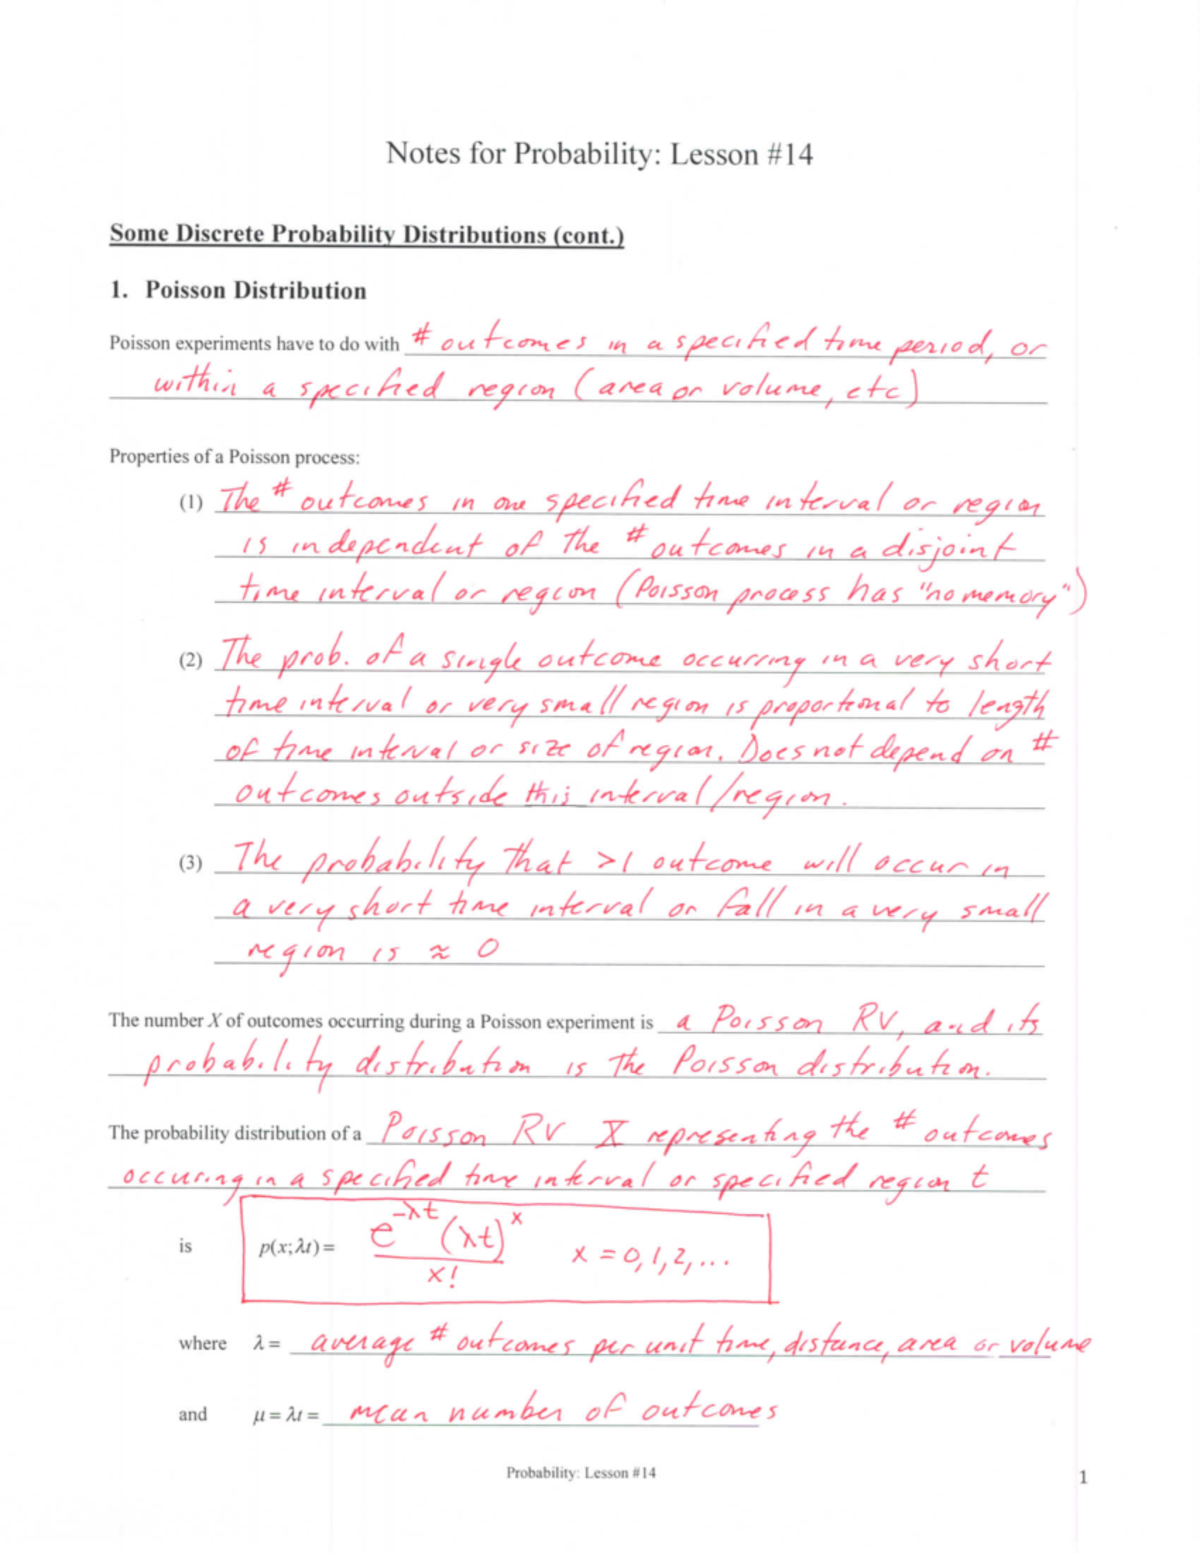 Notes for Probability: Lesson #14
Some Discrete Probability Distributions (cont.)
1. Poisson Distribution
Poisson experiments have to do with # outcomes in a specified time period, or
within a specified region (area or volume, etc)
Properties of a Poisson process:
(1) The # outcomes in one specified time interval or region
is independent of the # outcomes in a disjoint
time interval or region (Poisson process has "no memory")
(2) The prob. of a single outcome occurring in a very short
time interval or very small region is proportional to length
of time interval or size of region. Does not depend on #
outcomes outside this interval/region.
(3) The probability that >1 outcome will occur in
a very short time interval or fall in a very small
region is ≈ 0
The number X of outcomes occurring during a Poisson experiment is a Poisson RV, and its
probability distribution is the Poisson distribution.
The probability distribution of a Poisson RV X representing the # outcomes
occuring in a specified time interval or specified region t
is p(x; λt) = e^-λt (λt)^x / x! x = 0, 1, 2, ...
where λ = average # outcomes per unit time, distance, area or volume
and μ = λt = mean number of outcomes
Probability: Lesson #14
1